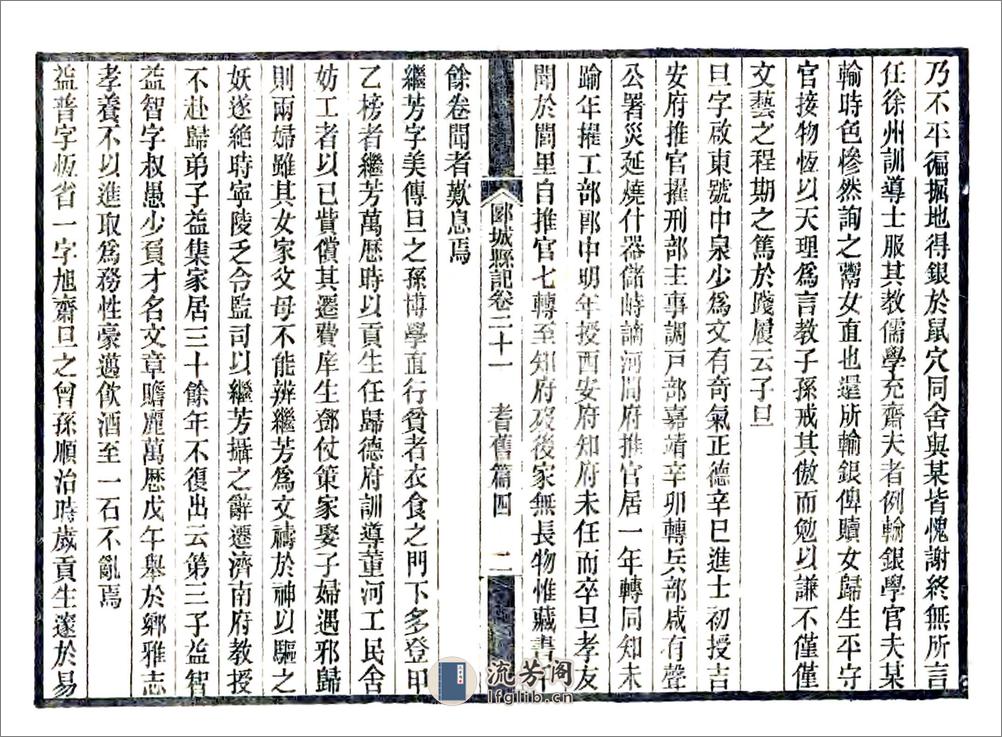 乃不平徧掘地得銀於鼠穴同舍與某皆愧謝終無所言
任徐州訓導士服其教儒學充齋夫者例輸銀學官夫某
輸時色慘然詢之鬻女直也遑所輸銀俾贖女歸生平守
官接物恆以天理爲言教子孫戒其傲而勉以謙不僅僅
文藝之程期之篤於踐履云子旦
旦字啟東號中泉少爲文有奇氣正德辛巳進士初授吉
安府推官擢刑部主事調戸部嘉靖辛卯轉兵部咸有聲
公署災延燒什器儲峙謫河間府推官居一年轉同知未
踰年擢工部郎中明年授西安府知府未任而卒旦孝友
聞於閭里自推官七轉至知府歿後家無長物惟藏書
郾城縣記卷二十一 耆舊篇四 二
餘卷聞者歎息焉
繼芳字美傳旦之孫博學直行貧者衣食之門下多登甲
乙榜者繼芳萬歷時以貢生任歸德府訓導董河工民舍
妨工者以已貲償其遷費庠生鄧仗策家娶子婦遇邪歸
則兩婦雖其女家父母不能辨繼芳爲文禱於神以驅之
妖遂絶時寧陵乏令監司以繼芳攝之辭遷濟南府教授
不赴歸弟子益集家居三十餘年不復出云第三子益智
益智字叔愚少負才名文章贍麗萬歷戊午舉於鄉雅志
孝養不以進取爲務性豪邁飲酒至一石不亂焉
益普字恆省一字旭齋旦之曾孫順治時歲貢生邃於易
流芳阁
lfglib.cn